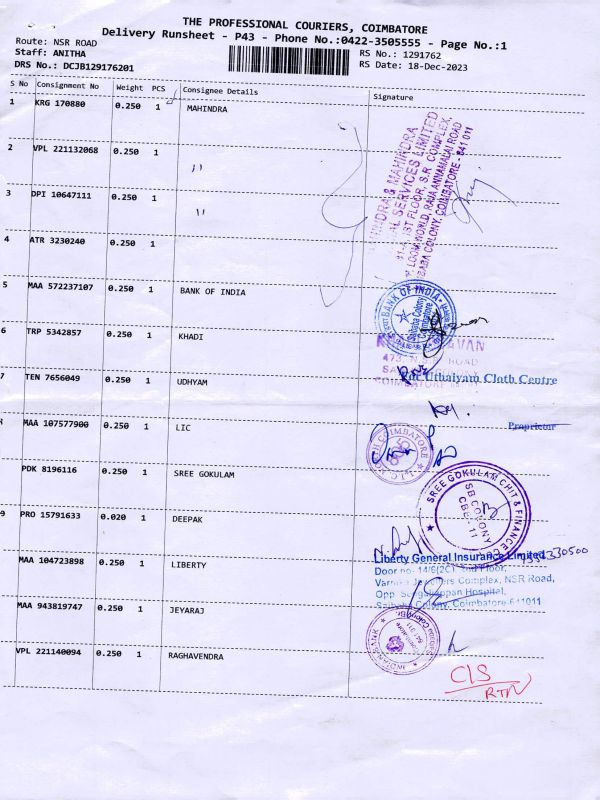 THE PROFESSIONAL COURIERS, COIMBATORE
Delivery Runsheet - P43 - Phone No.:0422-3505555 - Page No.:1
Route: NSR ROAD
RS No.: 1291762
Staff: ANITHA
RS Date: 18-Dec-2023
DRS No.: DCJB129176201
S No Consignment No Weight PCS Consignee Details Signature
1 KRG 170880 0.250 1 MAHINDRA
2 VPL 221132068 0.250 1 "
3 DPI 10647111 0.250 1 "
4 ATR 3230240 0.250 1
MAHINDRA & MAHINDRA
SERVICES LIMITED
1ST FLOOR, S.R. COMPLEX,
LOOM WORLD, RAJA ANNAMALAI ROAD
COLONY, COIMBATORE - 641 011
5 MAA 572237107 0.250 1 BANK OF INDIA
BANK OF INDIA
Saibaba Colony
Coimbatore
6 TRP 5342857 0.250 1 KHADI
ROAD
COIMBATORE
7 TEN 7656049 0.250 1 UDHYAM
For Uthaiyam Cloth Centre
Proprietor
MAA 107577900 0.250 1 LIC
COIMBATORE
PDK 8196116 0.250 1 SREE GOKULAM
SREE GOKULAM CHIT & FINANCE
SB COLONY
CBE-11
9 PRO 15791633 0.020 1 DEEPAK
MAA 104723898 0.250 1 LIBERTY
Liberty General Insurance Limited
Door no- 14/6(2C), 2nd Floor,
Complex, NSR Road,
Opp. Hospital,
Colony, Coimbatore-641011
MAA 943819747 0.250 1 JEYARAJ
INDIAN BANK
VPL 221140094 0.250 1 RAGHAVENDRA
C/S
RTN